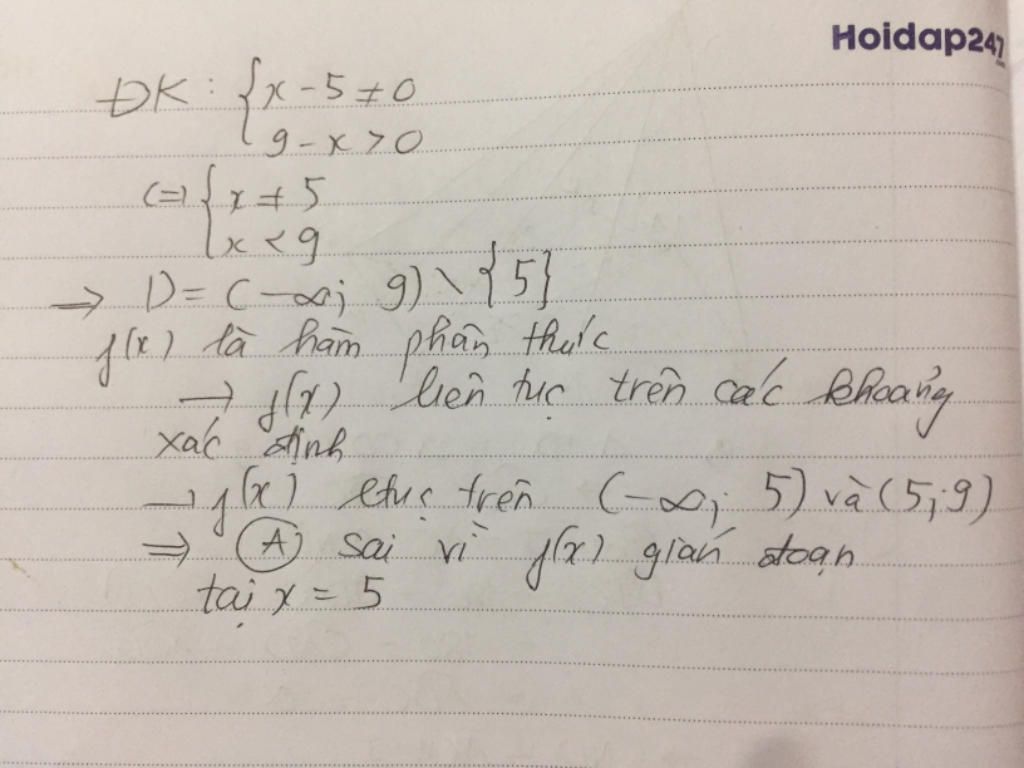 Hoidap247
ĐK: { x - 5 ≠ 0
9 - x > 0
<=> { x ≠ 5
x < 9
→ D = (-∞; 9) \ {5}
f(x) là hàm phân thức
→ f(x) liên tục trên các khoảng
xác định
→ f(x) ltục trên (-∞; 5) và (5; 9)
⇒ (A) sai vì f(x) gián đoạn
tại x = 5